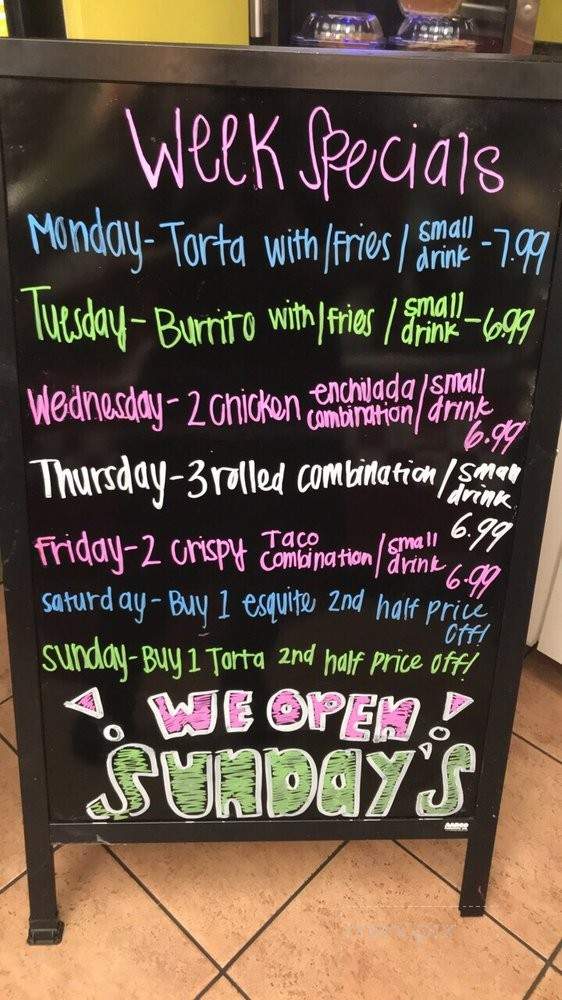 Week Specials
Monday- Torta with/Fries / small drink -7.99
Tuesday- Burrito with/fries / small drink-6.99
Wednesday- 2 chicken enchilada combination/small drink
6.99
Thursday-3 rolled combination/small drink
6.99
Friday-2 crispy Taco Combination/small drink
6.99
saturday-Buy 1 esquite 2nd half price
off!
sunday-Buy 1 Torta 2nd half price off!
¡WE OPEN!
SUNDAY'S